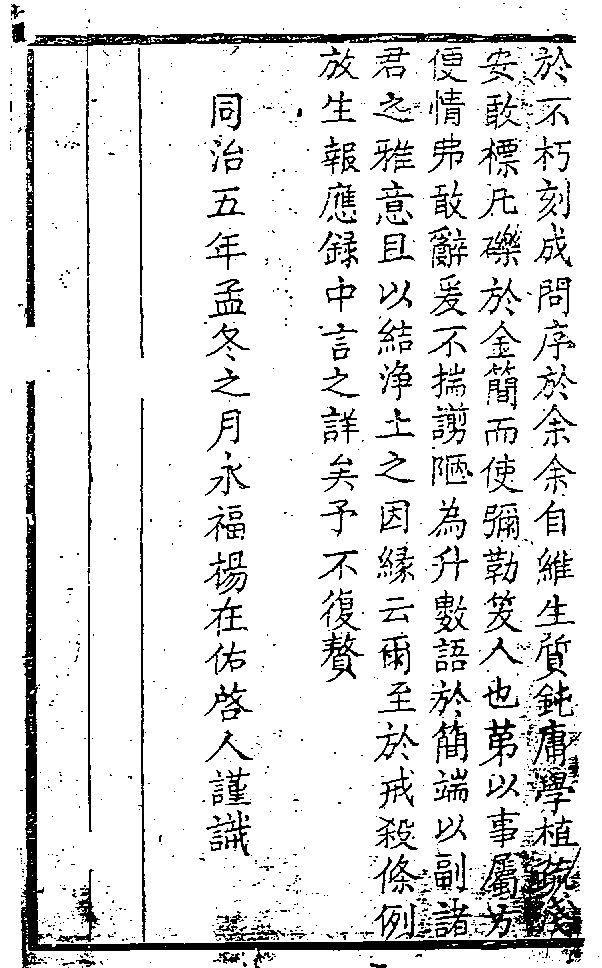 於不朽刻成問序於余余自維生質鈍庸學植疏淺
安敢標凡礫於金簡而使彌勒笑人也苐以事屬方
便情弗敢辭爰不揣謭陋為弁數語於簡端以副諸
君之雅意且以結淨土之因緣云爾至於戒殺條例
放生報應録中言之詳矣予不復贅
同治五年孟冬之月永福楊在佑啓人謹識